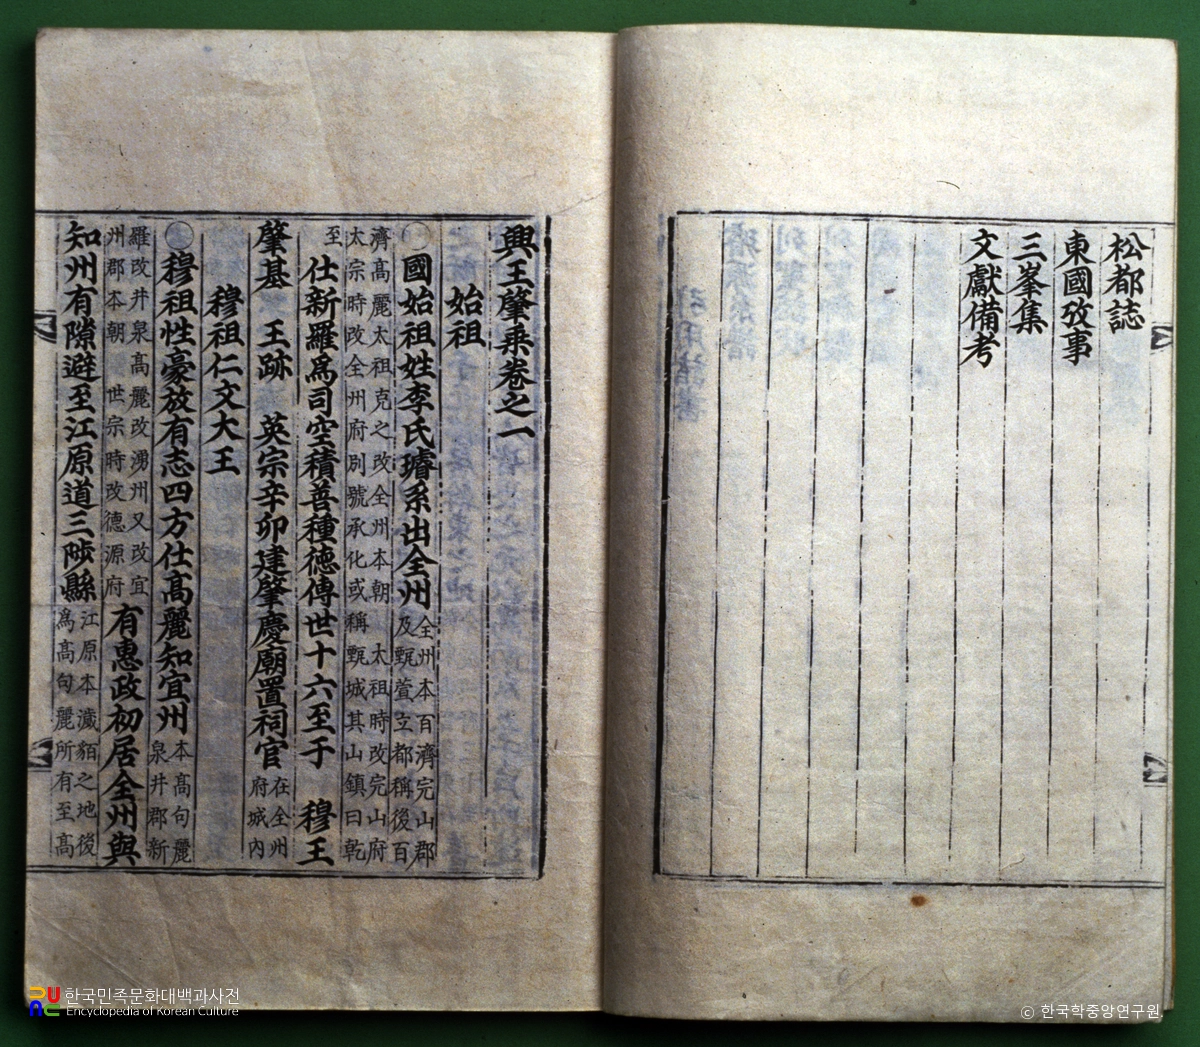 松都誌
東國攷事
三峯集
文獻備考
興王肇乗卷之一
始祖
○國始祖姓李氏璿系出全州全州本百濟完山郡及甄萱立都稱後百
濟高麗太祖克之改全州本朝 太祖時改完山府太宗時改全州府別號承化或稱甄城其山鎮曰乾
至 仕新羅爲司空積善種德傳世十六至于 穆王
肇基 王跡 英宗辛卯建肇慶廟置祠官在全州府城內
穆祖仁文大王
○穆祖性豪放有志四方仕高麗知宜州本高句麗泉井郡新
羅改井泉高麗改湧州又改宜州郡本朝 世宗時改德源府有惠政初居全州與
知州有隙避至江原道三陟縣江原本濊貊之地後爲高句麗所有至高
한국민족문화대백과사전
Encyclopedia of Korean Culture
© 한국학중앙연구원